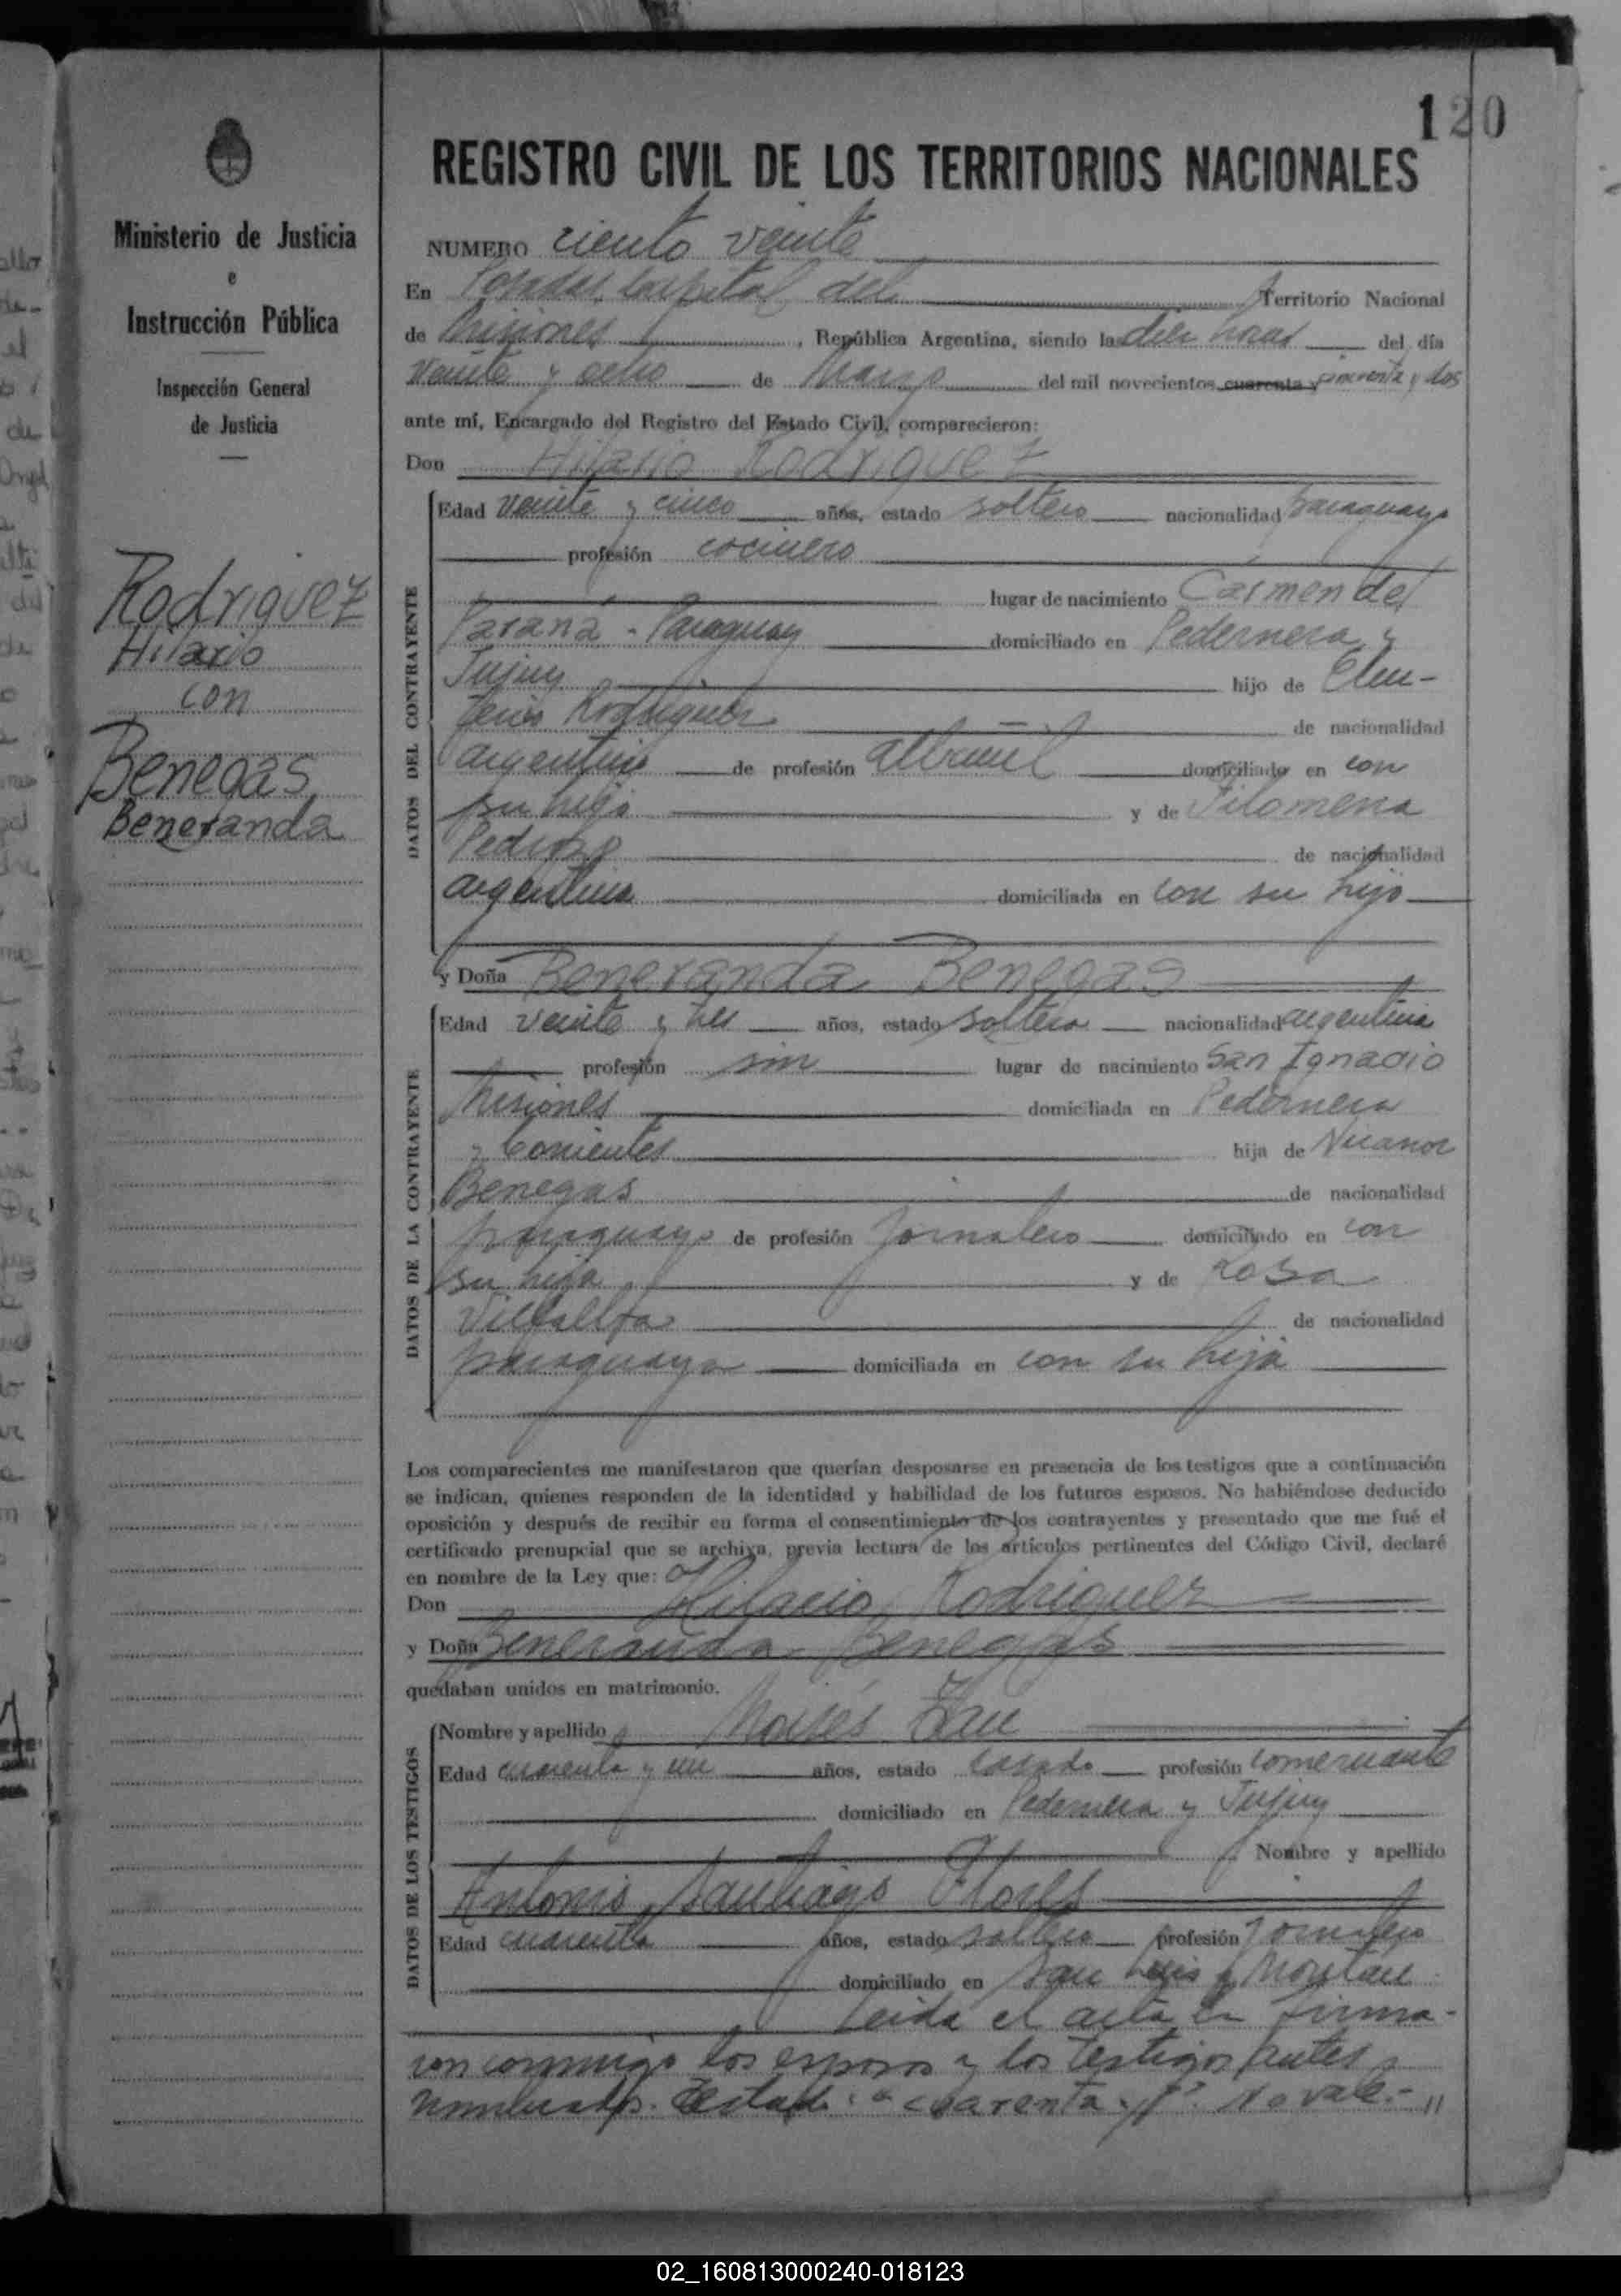 120
REGISTRO CIVIL DE LOS TERRITORIOS NACIONALES
Ministerio de Justicia
e
Instrucción Pública
Inspección General
de Justicia
Rodriguez
Hilario
con
Benegas
Beneranda
NUMERO ciento veinte
En Posadas, Capital del Territorio Nacional
de Misiones, República Argentina, siendo las diez horas del día
veinte y ocho de Marzo del mil novecientos cuarenta y cincuenta y dos
ante mí, Encargado del Registro del Estado Civil, comparecieron:
Don Hilario Rodriguez
DATOS DEL CONTRAYENTE
Edad veinte y cinco años, estado soltero nacionalidad paraguayo
profesión cocinero
lugar de nacimiento Carmen del
Paraná - Paraguay domiciliado en Pedernera y
Jujuy hijo de Eleu-
terio Rodriguez de nacionalidad
argentino de profesión albañil domiciliado en con
su hijo y de Filomena
Pedrozo de nacionalidad
argentina domiciliada en con su hijo
y Doña Beneranda Benegas
DATOS DE LA CONTRAYENTE
Edad veinte y tres años, estado soltera nacionalidad argentina
profesión sin lugar de nacimiento San Ignacio
Misiones domiciliada en Pedernera
y Corrientes hija de Nicanor
Benegas de nacionalidad
paraguayo de profesión Jornalero domiciliado en con
su hija y de Rosa
Villalba de nacionalidad
paraguaya domiciliada en con su hija
Los comparecientes me manifestaron que querían desposarse en presencia de los testigos que a continuación
se indican, quienes responden de la identidad y habilidad de los futuros esposos. No habiéndose deducido
oposición y después de recibir en forma el consentimiento de los contrayentes y presentado que me fué el
certificado prenupcial que se archiva, previa lectura de los artículos pertinentes del Código Civil, declaré
en nombre de la Ley que:
Don Hilario Rodriguez
y Doña Beneranda Benegas
quedaban unidos en matrimonio.
DATOS DE LOS TESTIGOS
Nombre y apellido Moisés
Edad cuarenta y un años, estado casado profesión comerciante
domiciliado en Pedernera y Jujuy
Nombre y apellido
Antonio Santiago Flores
Edad cuarenta años, estado soltero profesión Jornalero
domiciliado en San Luis y
Leida el acta la firma-
ron conmigo los esposos y los testigos antes
nombrados. Testado: "cuarenta y". No vale.-
02_160813000240-018123